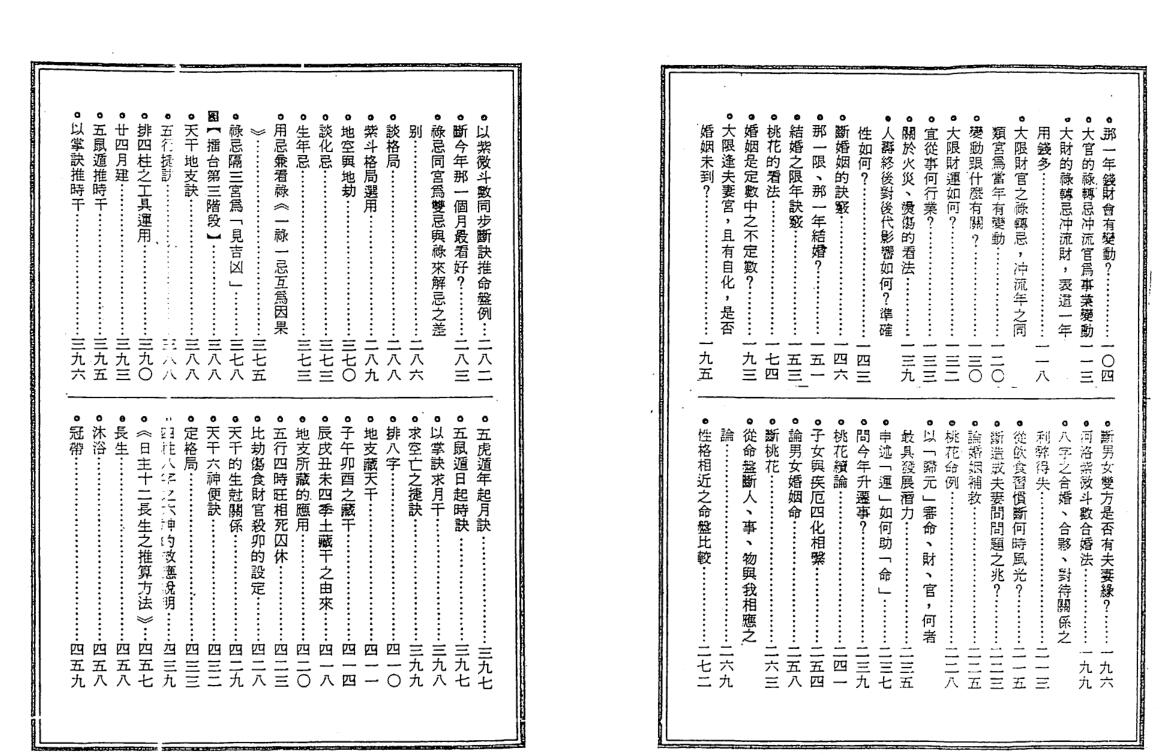 •那一年錢財會有變動？……一〇四
•大官的祿轉忌冲流官爲事業變動…一一三
•大財的祿轉忌冲流財，表這一年
用錢多……一一八
•大限財官之祿轉忌，冲流年之同
類宮爲當年有變動……一二〇
•變動跟什麼有關？……一三〇
•大限財運如何？……一三二
•宜從事何行業？……一三三
•關於火災、燙傷的看法……一三九
•人壽終後對後代影響如何？準確
性如何？……一四三
•斷婚姻的訣竅……一四六
•那一限、那一年結婚？……一五一
•結婚之限年訣竅……一五三
•桃花的看法……一七四
•婚姻是定數中之不定數？……一九三
•大限逢夫妻宮，且有自化，是否
婚姻未到？……一九五
•斷男女雙方是否有夫妻緣？……一九六
•河洛紫微斗數合婚法……一九九
•八字之合婚、合夥、對待關係之
利弊得失……二一三
•從飲食習慣斷何時風光？……二一五
•斷造成夫妻問問題之兆？……二二三
•論婚姻補救……二二五
•桃花命例……二二八
•以「歸元」審命、財、官，何者
最具發展潛力……二三五
•申述「運」如何助「命」……二三七
•問今年升遷事？……二三九
•桃花續論……二四一
•子女與疾厄四化相繫……二五四
•論男女婚姻命……二五八
•斷桃花……二六三
•從命盤斷人、事、物與我相應之
論……二六九
•性格相近之命盤比較……二七二
•以紫微斗數同步斷訣推命盤例…二八二
•斷今年那一個月最看好？……二八三
•祿忌同宮爲雙忌與祿來解忌之差
別……二八六
•談格局……二八八
•紫斗格局選用……二八九
•地空與地劫……三七〇
•談化忌……三七三
•生年忌……三七三
•用忌兼看祿《一祿一忌互爲因果
》……三七五
•祿忌隔三宮爲「見吉凶」……三七八
図【擂台第三階段】……三八八
•天干地支訣……三八八
•五行捷訣……三八八
•排四柱之工具運用……三九〇
•廿四月建……三九三
•五鼠遁推時干……三九五
•以掌訣推時干……三九六
•五虎遁年起月訣……三九七
•五鼠遁日起時訣……三九七
•以掌訣求月干……三九八
•求空亡之捷訣……三九九
•排八字……四一〇
•地支藏天干……四一一
•子午卯酉之藏干……四一四
•辰戌丑未四季土藏干之由來……四一八
•地支所藏的應用……四二〇
•五行四時旺相死囚休……四二三
•比劫傷食財官殺卯的設定……四二八
•天干的生尅關係……四二九
•天干六神便訣……四三二
•定格局……四三三
•四柱八字之六神的效應說明……四三九
•《日主十二長生之推算方法》…四五七
•長生……四五八
•沐浴……四五八
•冠帶……四五九